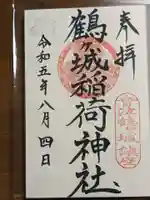 奉拝
鶴ヶ城稲荷神社
令和五年八月四日